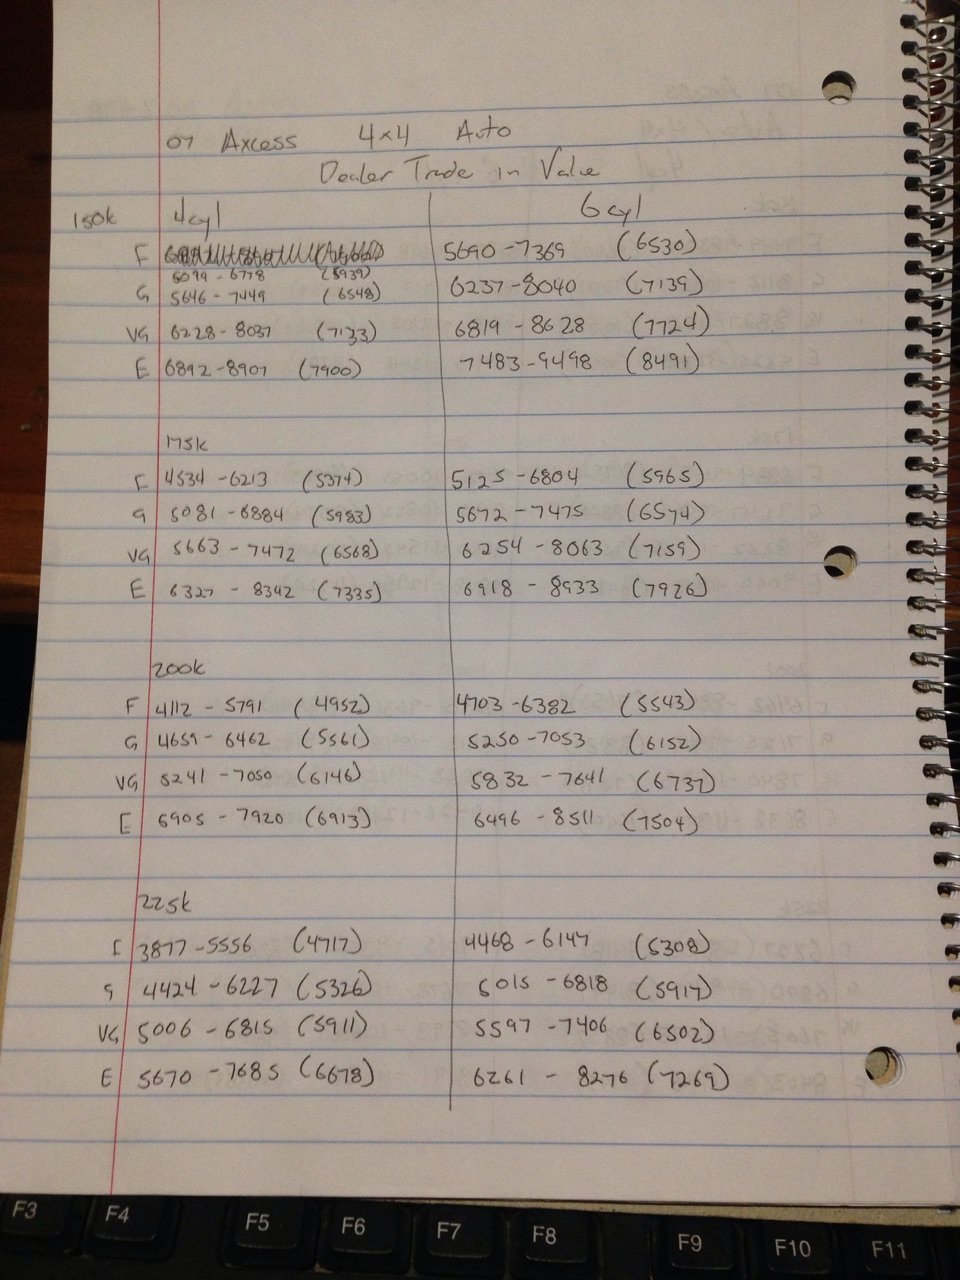 07 Axcess 4x4 Auto
Dealer Trade in Value
150k 4cyl 6cyl
F 5690-7369 (6530)
5099-6778 (5939)
G 5646-7449 (6548) 6237-8040 (7139)
VG 6228-8037 (7133) 6819-8628 (7724)
E 6892-8907 (7900) 7483-9498 (8491)
175k
F 4534-6213 (5374) 5125-6804 (5965)
G 5081-6884 (5983) 5672-7475 (6574)
VG 5663-7472 (6568) 6254-8063 (7159)
E 6327-8342 (7335) 6918-8933 (7926)
200k
F 4112-5791 (4952) 4703-6382 (5543)
G 4659-6462 (5561) 5250-7053 (6152)
VG 5241-7050 (6146) 5832-7641 (6737)
E 6905-7920 (6913) 6496-8511 (7504)
225k
F 3877-5556 (4717) 4468-6147 (5308)
G 4424-6227 (5326) 5015-6818 (5917)
VG 5006-6815 (5911) 5597-7406 (6502)
E 5670-7685 (6678) 6261-8276 (7269)
F3 F4 F5 F6 F7 F8 F9 F10 F11